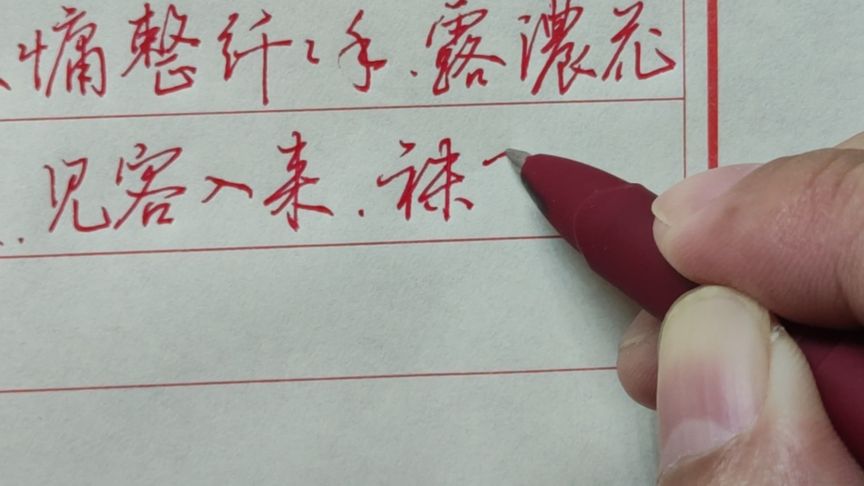 慵整纤纤手.露濃花
.见客入来.袜